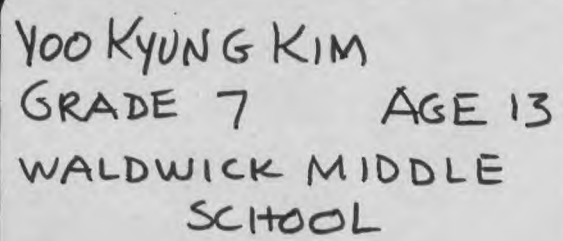 YOO KYUNG KIM
GRADE 7 AGE 13
WALDWICK MIDDLE
SCHOOL